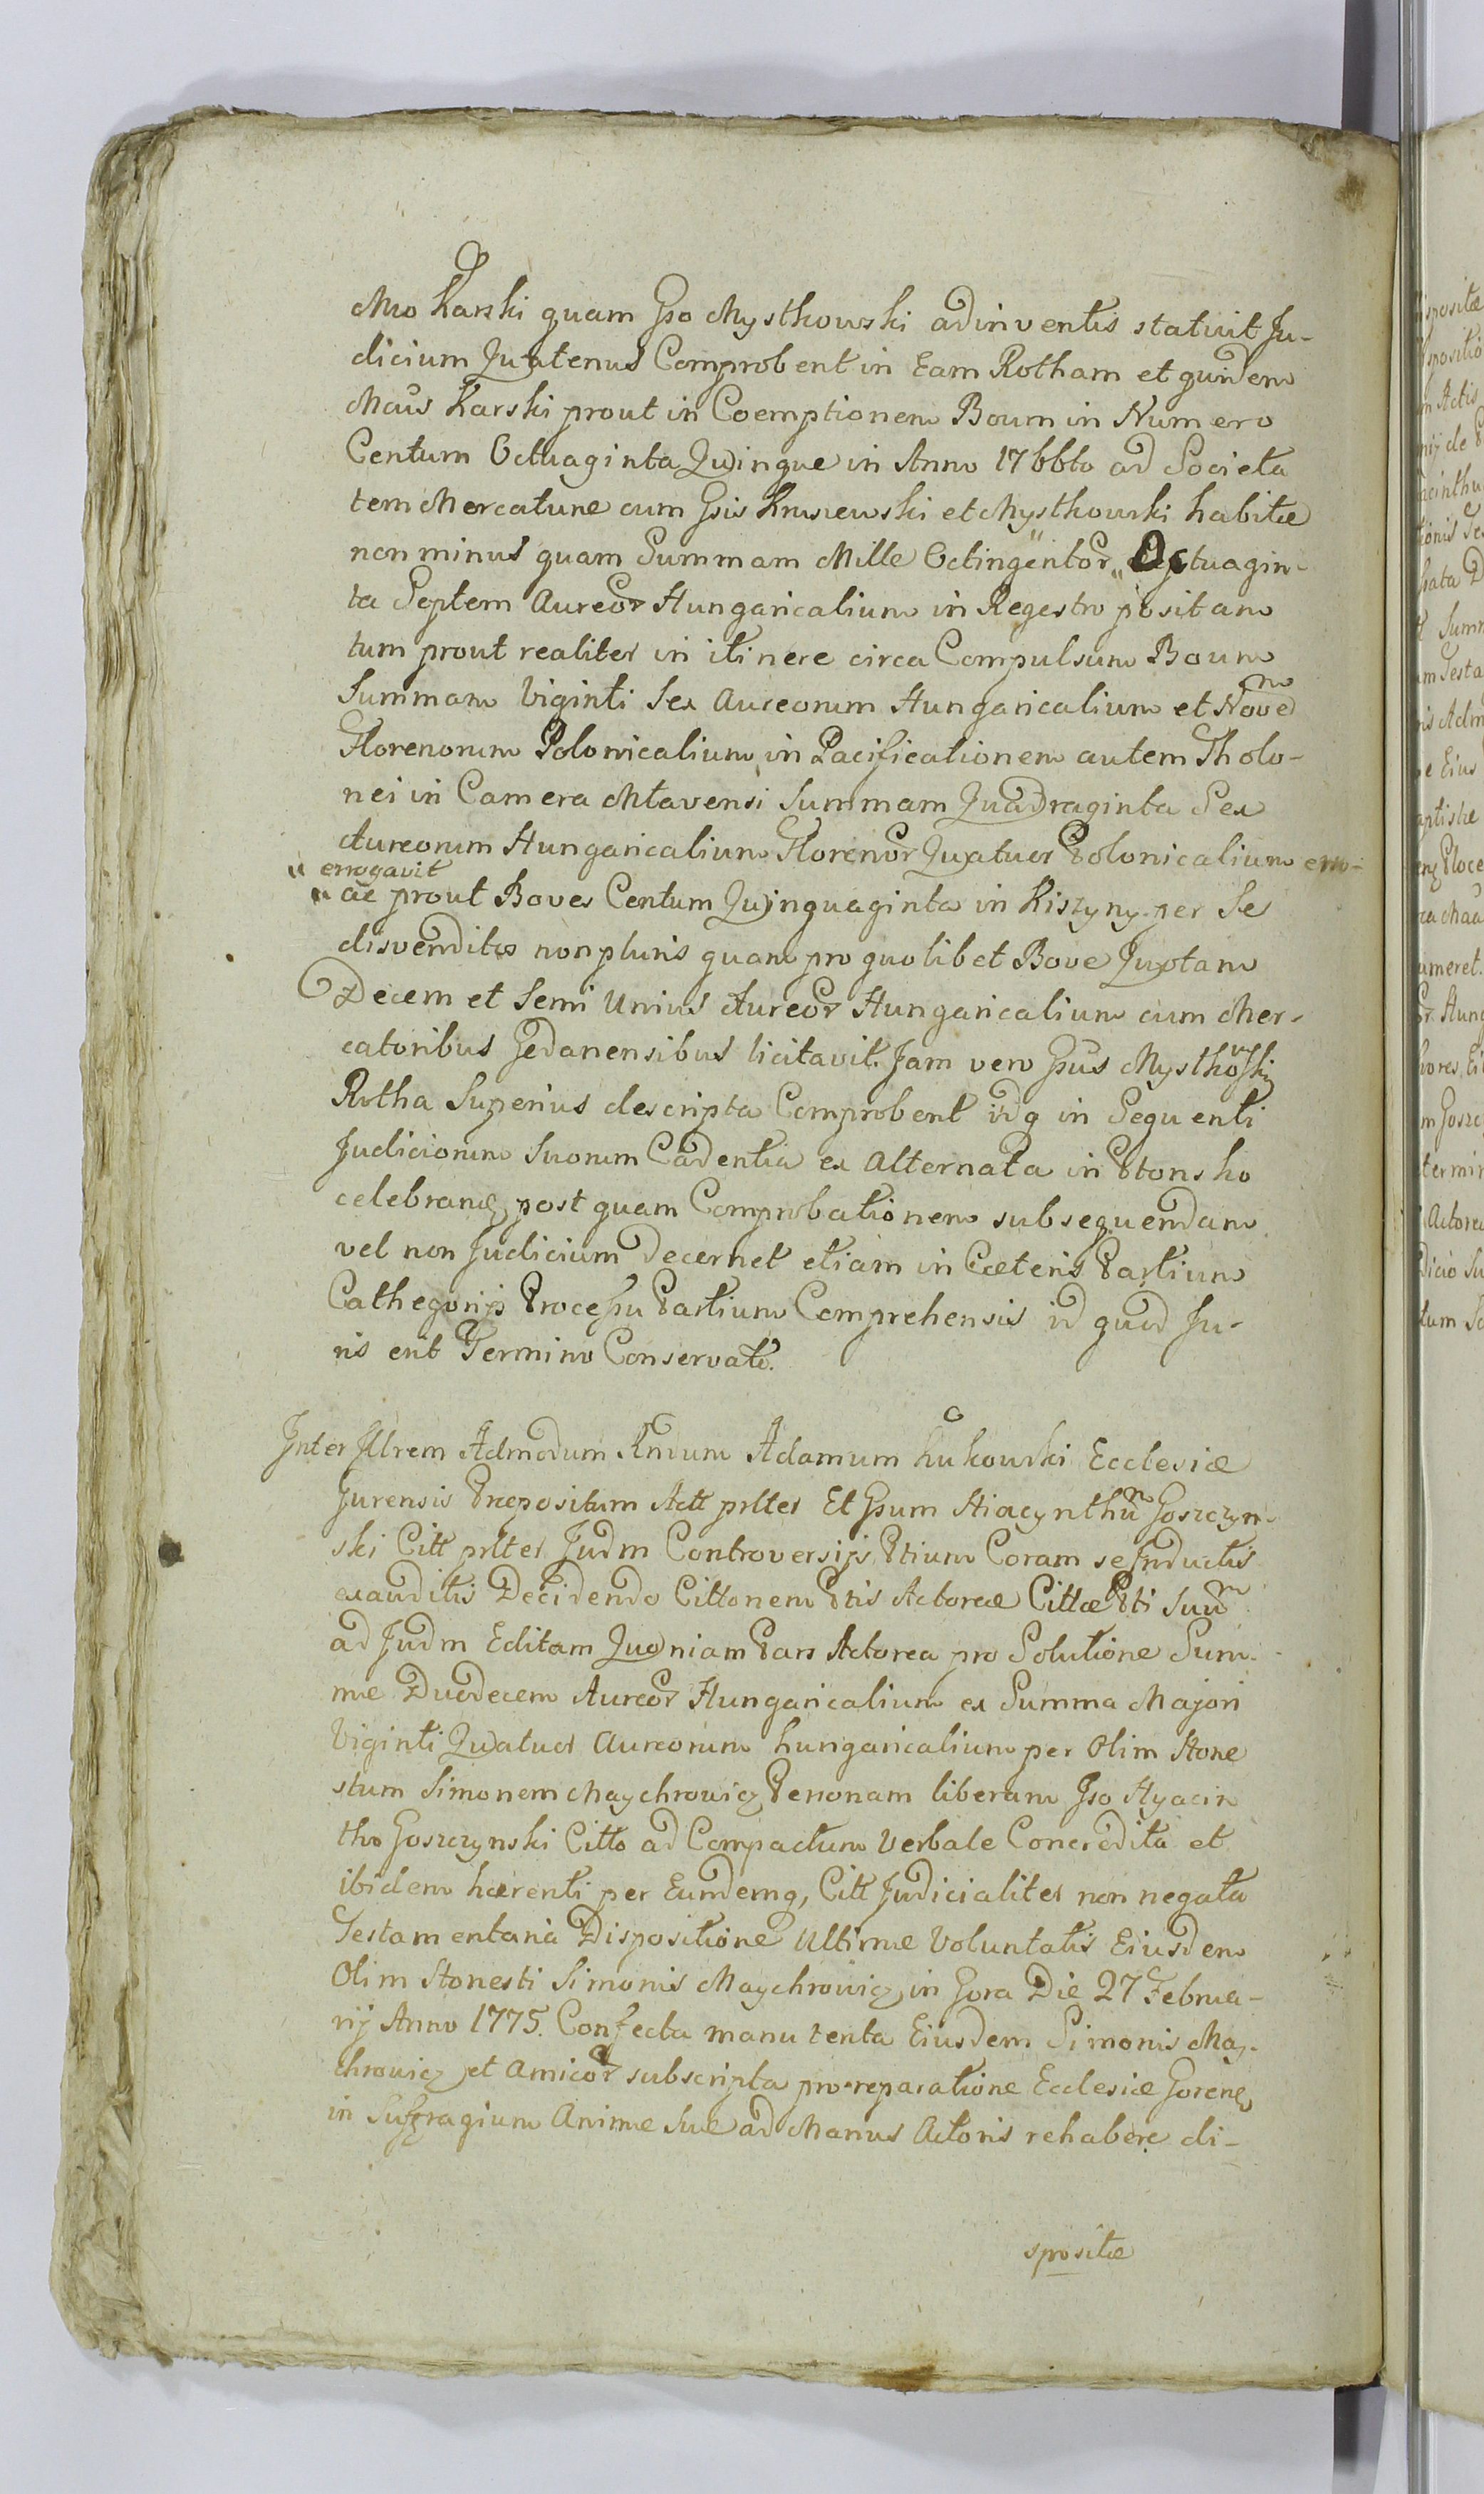 Mco Karski quam Gso Mysthowski adinventis statuit Ju-
dicium Quatenus Comprobent in Eam Rotham et quidem
Mcus Karski prout in Coemptionem Boum in Numero
Centum Octuaginta Quinque in Anno 1766to ad Societa
tem Mercaturae cum Gsis Krusiewski et Mysthowski habitae
non minus quam Summam Mille Octingentor Octuagin-
ta Septem Aureor Hungaricalium in Regestro positam
tum prout realiter in itinere circa Compulsum Boum
Summam Viginti Sex Aureorum Hungaricalium et Novem
Florenorum Polonicalium, in Pacificationem autem Tholo-
nei in Camera Mlavensi Summam Quadraginta Sex
Aureorum Hungaricalium Florenor Quatuor Polonicalium erro-
" errogavit
" ac prout Boves Centum Quinquaginta in Kiszyny per Se
disvenditos non pluris quam pro quolibet Bove Quotam
Decem et Semi Unius Aureor Hungaricalium cum Mer-
catoribus Gedanensibus licitavit. Jam vero Gsus Mysthowski
Rotha Superius descripta Comprobent idq in Sequenti
Judiciorum Suorum Cadentia ex Alternata in Płonsko
celebranda, post quam Comprobationem subsequendam
vel non Judicium Decernet etiam in Caeteris Partium
Cathegorijs Processu Partium Comprehensis id quod Ju-
ris erit Termino Conservato.
Inter Illrem Admodum Rndum Adamum Łukowski Ecclesiae
Gurensis Praepositum Actt prlter Et Gsum Hiacynthum Goszczyn-
ski Citt prlter Judm Controversijs Ptium Coram se Inductis
exauditis Decidendo Cittonem Ptis Actoreae Cittae Pti Suum
ad Judm Editam Quoniam Pars Actorea pro Solutione Sum-
mae Duodecem Aureor Hungaricalium ex Summa Majori
Viginti Quatuor Aureorum hungaricalium per Olim Hone
stum Simonem Maychrowicz Personam liberam Gso Hyacin
tho Goszczynski Citto ad Compactum Verbale Concredita et
ibidem haerenti per Eundemq, Citt Judicialiter non negata
Testamentaria Dispositione Ultimae Voluntatis Eiusdem
Olim Honesti Simonis Maychrowicz in Gora Die 27 Februa-
rij Anno 1775. Confecta manu tenta Eiusdem Simonis May-
chrowicz et Amicor subscripta pro reparatione Ecclesiae Goren
in Suffragium Animae Suae ad Manus Actoris rehabere di-
spositae